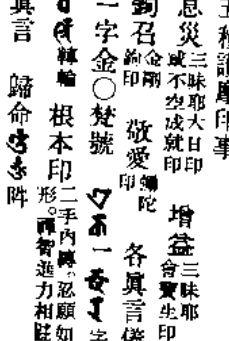 五種護摩印事
息災三昧耶大日印或不空成就印 增益三昧耶會寶生印
鉤召金剛鉤印 敬愛彌陀印 各眞言儀
一字金〇梵號 一 字
轉輪 根本印二手內縛。忍願如形。禪智進力相
眞言 歸命